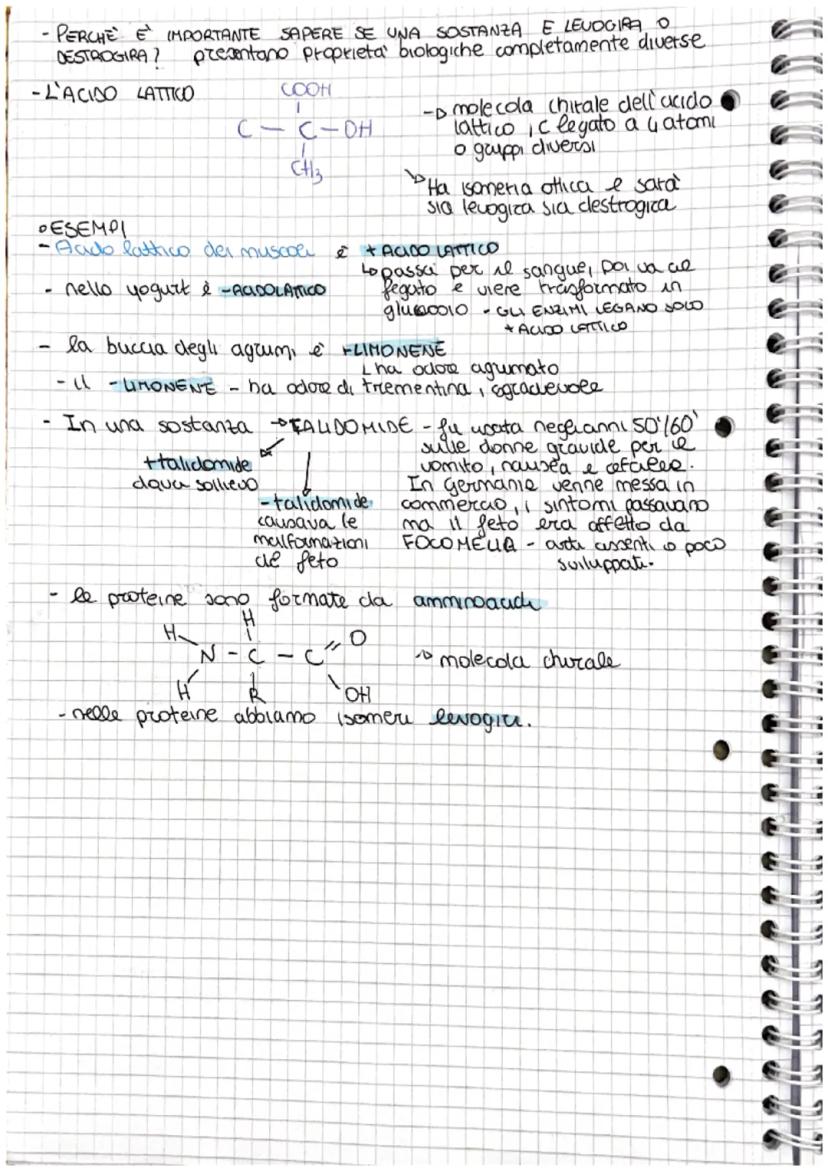 - PERCHÈ È IMPORTANTE SAPERE SE UNA SOSTANZA E LEVOGIRA O
DESTROGIRA? presentano proprietà biologiche completamente diverse
- L'ACIDO LATTICO
COOH
C - C - OH
CH3
→ molecola chirale dell'acido
lattico, C legato a 4 atomi
o gruppi diversi
↳ Ha isomeria ottica e sarà
sia levogira sia destrogira
• ESEMPI
- Acido lattico dei muscoli è + ACIDO LATTICO
↳ passa per il sangue, poi va al
fegato e viene trasformato in
glucosio - GLI ENZIMI LEGANO SOLO
+ ACIDO LATTICO
- nello yogurt è - ACIDO LATTICO
- la buccia degli agrumi è + LIMONENE
↳ ha odore agrumato
- il - LIMONENE - ha odore di trementina, sgradevole
- In una sostanza → TALIDOMIDE - fu usata negli anni 50'/60'
sulle donne gravide per il
vomito, nausea e cefalee.
In Germania venne messa in
commercio, i sintomi passavano
ma il feto era affetto da
FOCOMELIA - arti assenti o poco
sviluppati.
+ talidomide
dava sollievo
- talidomide
causava le
malformazioni
al feto
- le proteine sono formate da amminoacidi
H H O
N - C - C
H R OH
→ molecola chirale
- nelle proteine abbiamo isomeri levogiri.